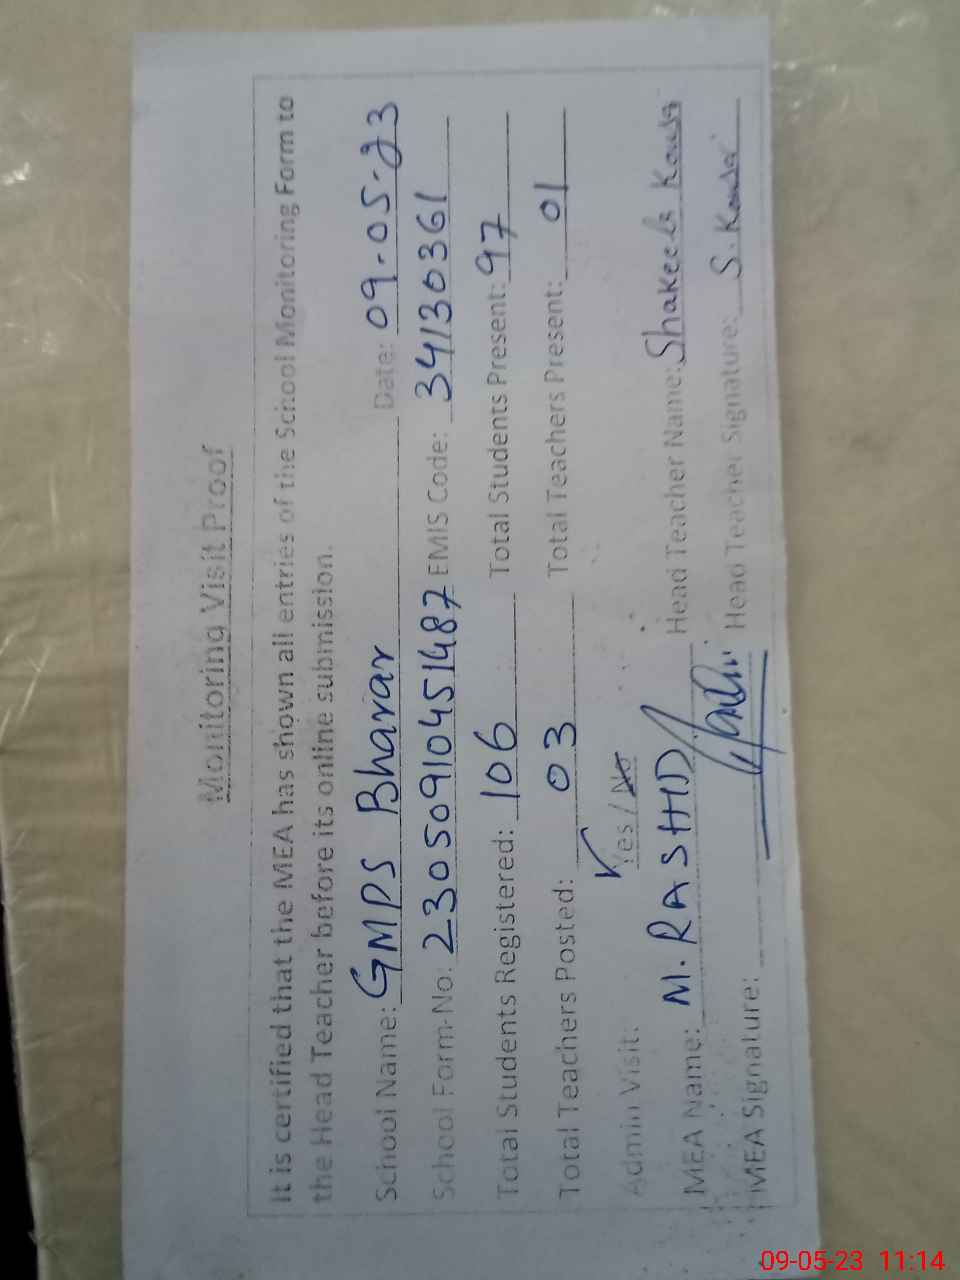 Monitoring Visit Proof
It is certified that the MEA has shown all entries of the School Monitoring Form to
the Head Teacher before its online submission.
School Name: GMPS Bharar Date: 09-05-23
School Form-No: 23050910451487 EMIS Code: 34130361
Total Students Registered: 106 Total Students Present: 97
Total Teachers Posted: 03 Total Teachers Present: 01
Admin Visit: Yes / No
MEA Name: M. RASHID Head Teacher Name: Shakeela Kousar
MEA Signature: Head Teacher Signature: S. Kousar
09-05-23 11:14